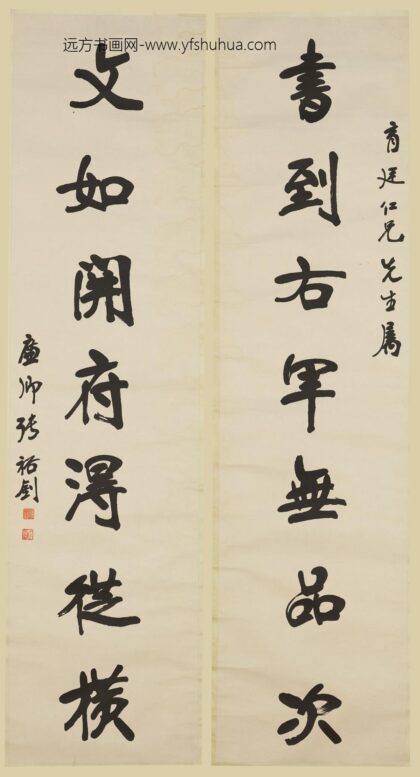 远方书画网-www.yfshuhua.com
育廷仁兄先生屬
書到右軍無品次
文如開府淂從橫
廉卿張裕釗